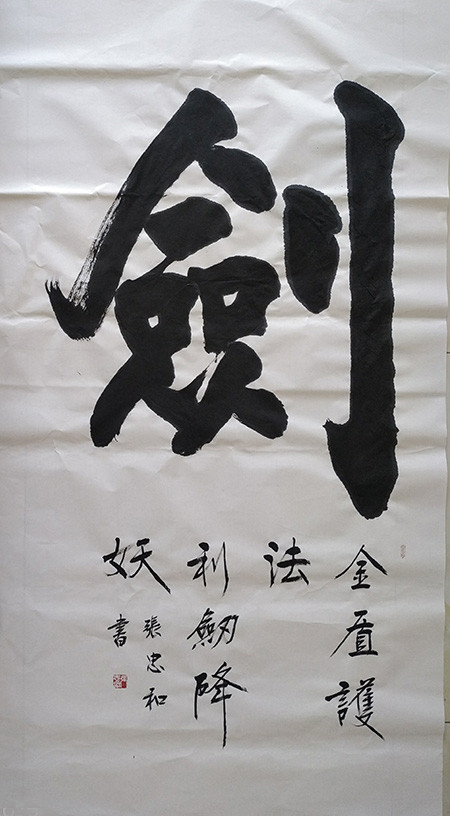 劍
金盾護
法
利劒降
妖
張忠和
書